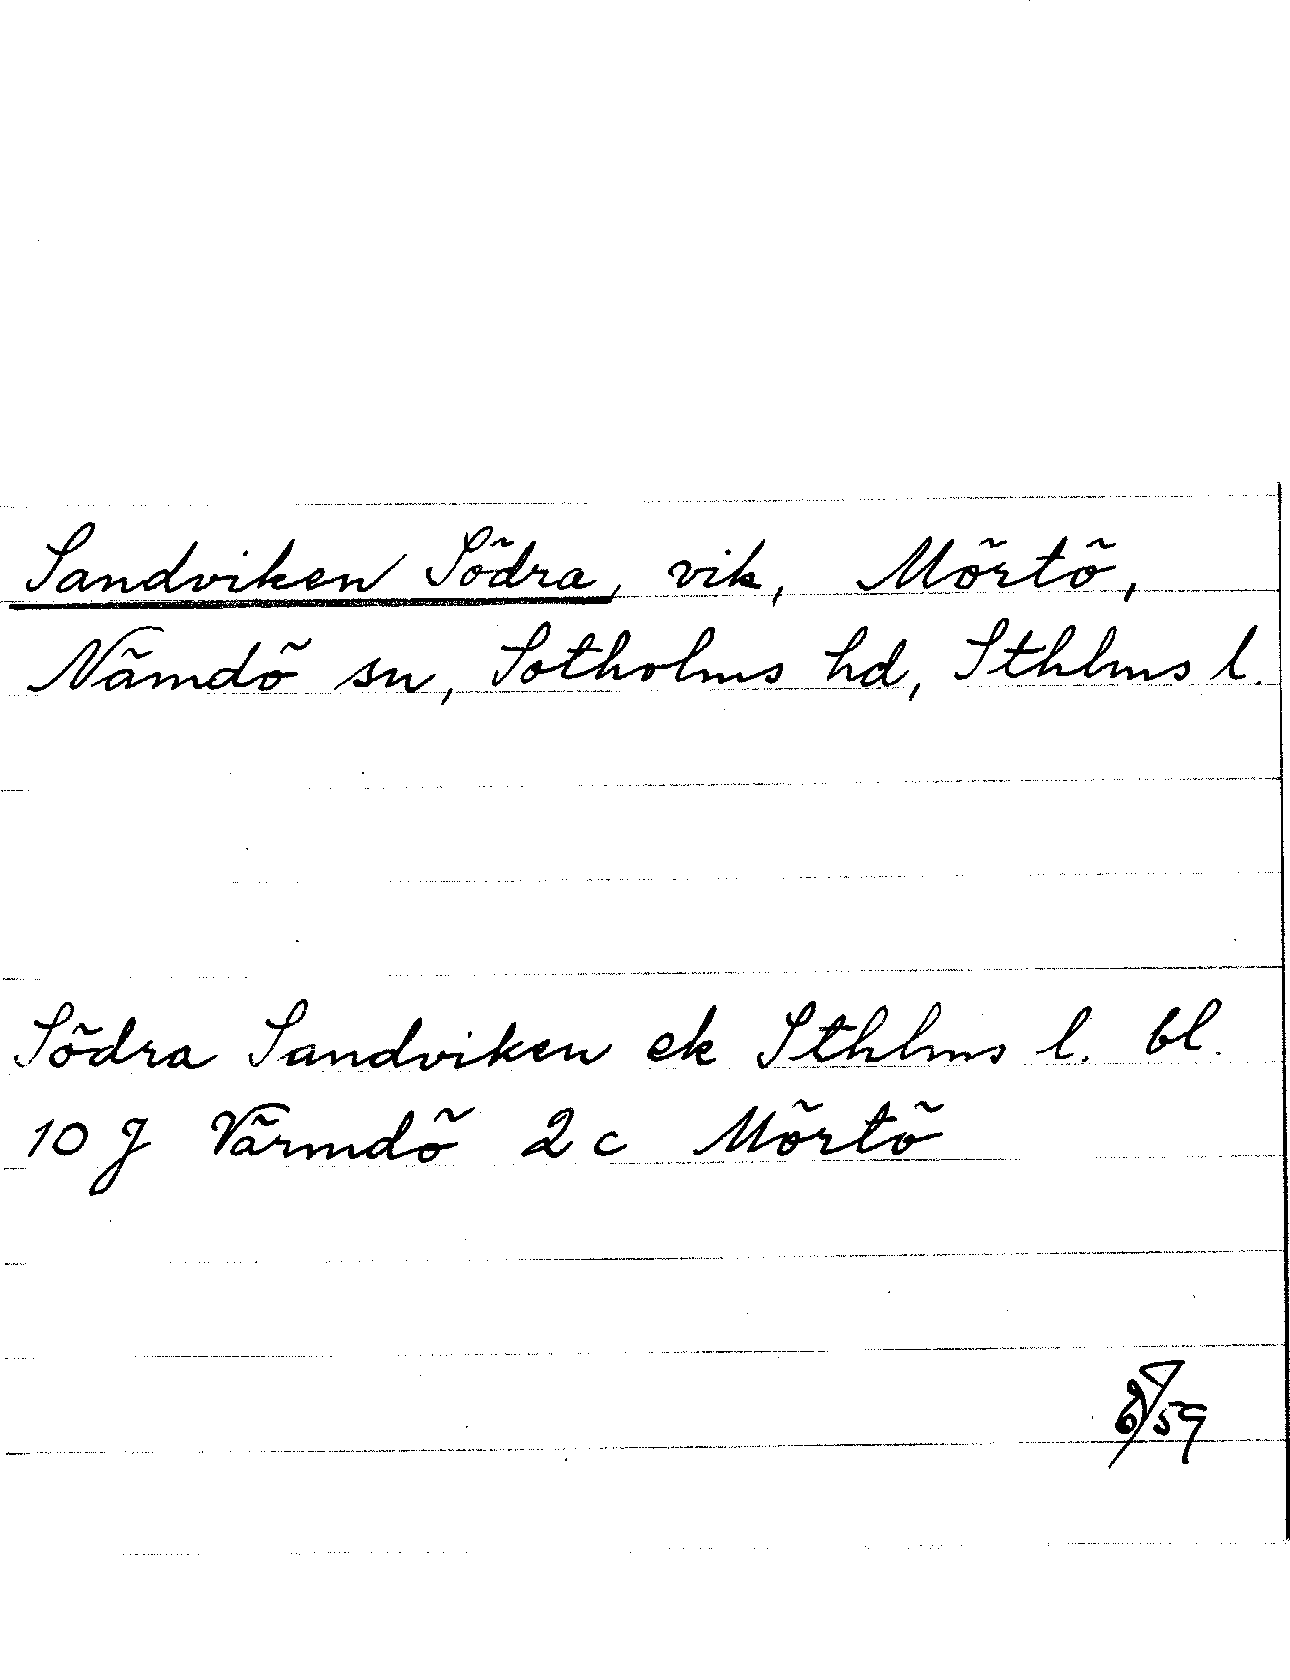 Sandviken Södra, vik, Mörtö,
Nämdö sn, Sotholms hd, Sthlms l.
Södra Sandviken ek Sthlms l. bl.
10 J Värmdö 2 c Mörtö